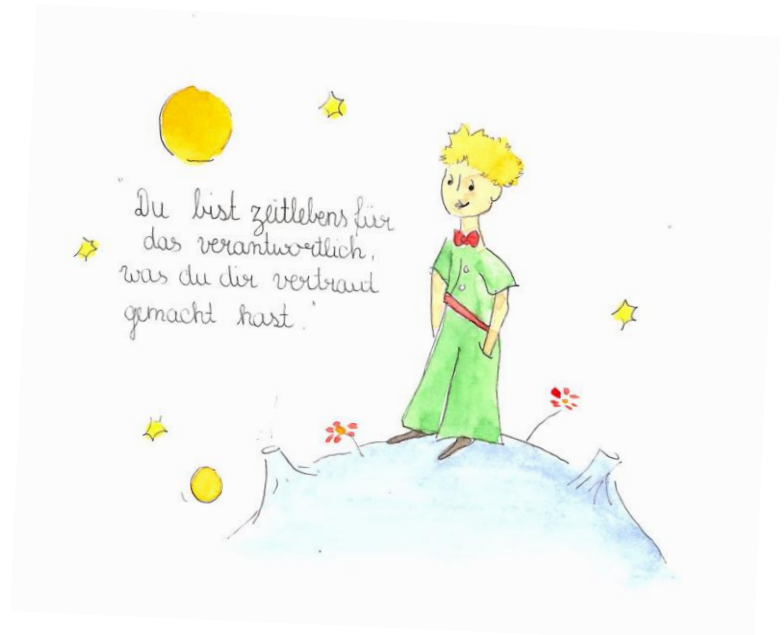 "Du bist zeitlebens für
das verantwortlich,
was du dir vertraut
gemacht hast."